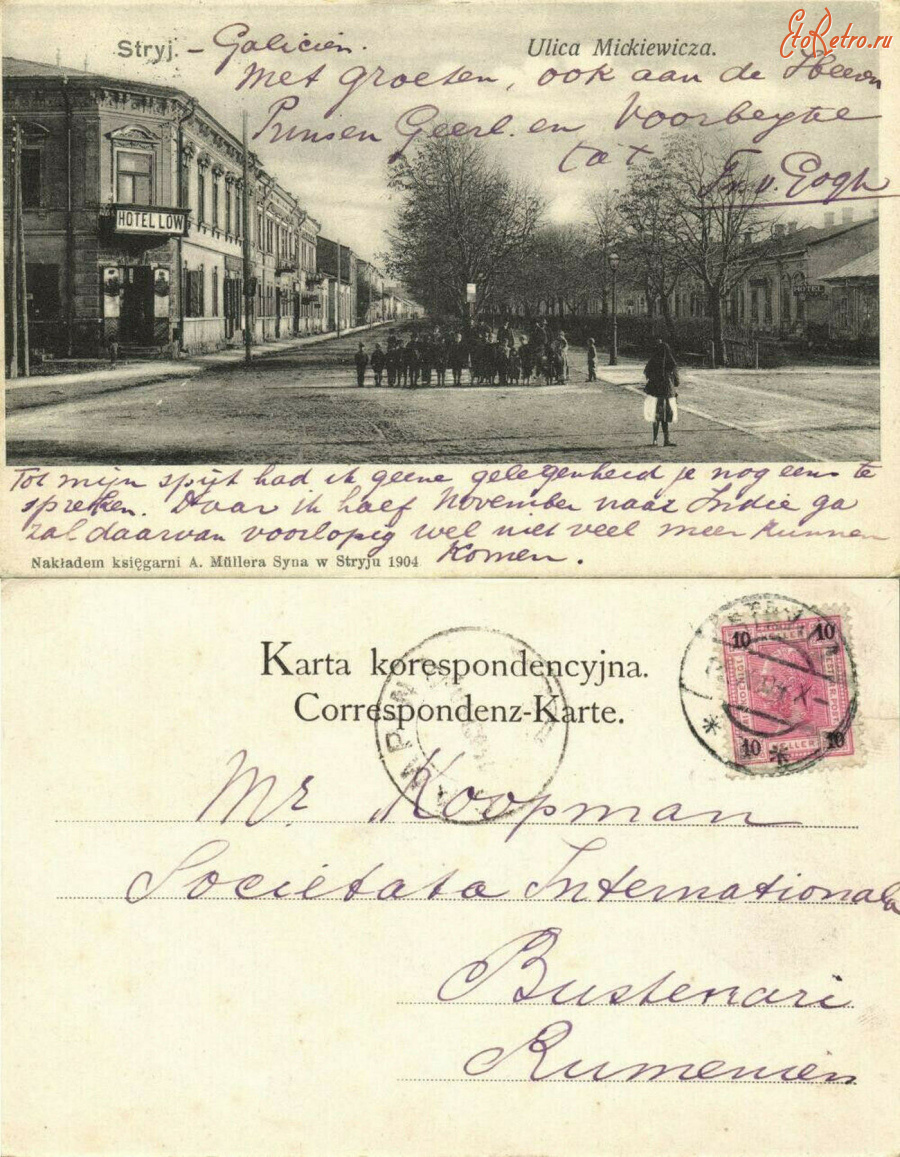 EtoRetro.ru
Stryj. - Galicien. Ulica Mickiewicza.
Met groeten, ook aan de Heeren
Prinsen Geerl. en Voorbeytel
tàt
Fr. v. Gogh
HOTEL LÖW
HOTEL
Tot mijn spijt had ik geene gelegenheid je nog eens te
spreken. Daar ik half November naar Indie ga
zal daarvan voorlopig wel niet veel meer kunnen
komen.
Nakładem księgarni A. Müllera Syna w Stryju 1904
Karta korespondencyjna.
Correspondenz-Karte.
10 10
10 HELLER 10
Mr. Koopman
Societata Internationala
Bustenari
Rumenien